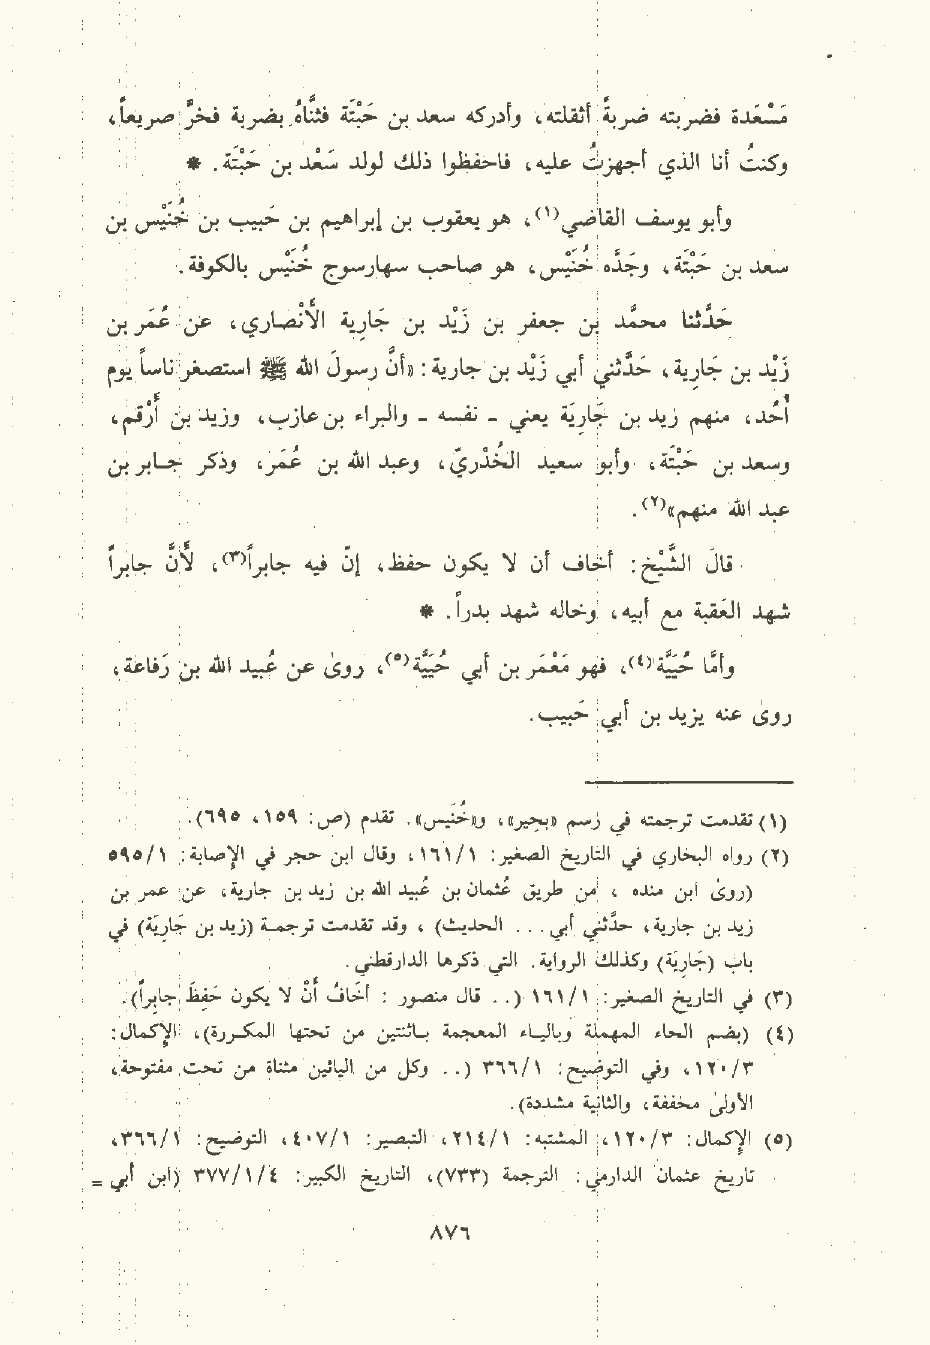 مَسْعَدة فضربته ضربةً أثقلته، وأدركه سعد بن حَبْتَة فثَّناهُ بضربة فخرَّ صريعاً،
وكنتُ أنا الذي أجهزتُ عليه، فاحفظوا ذلك لولد سَعْد بن حَبْتَة. *
وأبو يوسف القاضي(١)، هو يعقوب بن إبراهيم بن حَبيب بن خُنَيْس بن
سعد بن حَبْتَة، وجَدُّه خُنَيْس، هو صاحب چهارسوج خُنَيْس بالكوفة.
حَدَّثنا محمَّد بن جعفر بن زَيْد بن جَارِية الأنْصاري، عن عُمَر بن
زَيْد بن جَارِية، حَدَّثني أبي زَيْد بن جارية: «أنَّ رسولَ الله ﷺ استصغر ناساً يوم
أُحُد، منهم زيد بن جَارِيَة يعني - نفسه - والبراء بن عازب، وزيد بن أَرْقم،
وسعد بن حَبْتَة، وأبو سعيد الخُدْريّ، وعبد الله بن عُمَر، وذكر جابر بن
عبد الله منهم»(٢).
قالَ الشَّيْخ: أخاف أن لا يكون حفظ، إنّ فيه جابراً(٣)، لأنَّ جابراً
شهد العَقبة مع أبيه، وخاله شهد بدراً. *
وأمَّا حُيَيَّة(٤)، فهو مَعْمَر بن أبي حُيَيَّة(٥)، روىٰ عن عُبيد الله بن رَفاعة،
روىٰ عنه يزيد بن أبي حَبيب.
(١) تقدمت ترجمته في رسم «بجير»، و«خُنَيس». تقدم (ص: ١٥٩، ٦٩٥).
(٢) رواه البخاري في التاريخ الصغير: ١/١٦١، وقال ابن حجر في الإصابة: ١/٥٩٥
(روىٰ ابن منده ، من طريق عُثمان بن عُبيد الله بن زيد بن جارية، عن عمر بن
زيد بن جارية، حدَّثني أبي... الحديث) ، وقد تقدمت ترجمة (زيد بن جَارِيَة) في
باب (جَارِيَة) وكذلك الرواية. التي ذكرها الدارقطني.
(٣) في التاريخ الصغير: ١/١٦١ (.. قال منصور : أخَافُ أنْ لا يكون حَفِظَ جابِراً).
(٤) (بضم الحاء المهملة وبالياء المعجمة باثنتين من تحتها المكررة)، الإكمال:
٣/١٢٠، وفي التوضيح: ١/٣٦٦ (.. وكل من اليائين مثناة من تحت مفتوحة،
الأولىٰ مخففة، والثانية مشددة).
(٥) الإكمال: ٣/١٢٠، المشتبه: ١/٢١٤، التبصير: ١/٤٠٧، التوضيح: ١/٣٦٦،
تاريخ عثمان الدارمي: الترجمة (٧٣٣)، التاريخ الكبير: ٤/١/٣٧٧ (ابن أبي =
٨٧٦